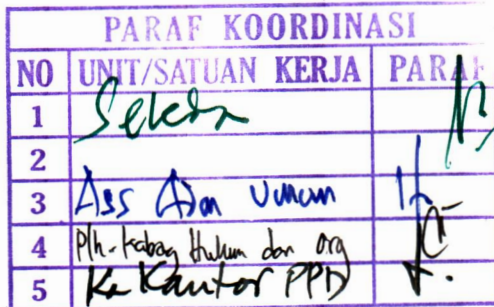 PARAF KOORDINASI
NO UNIT/SATUAN KERJA PARAF
1 Sekda
2
3 Ass Adm Umum
4 Plh. Kabag Hukum dan org
5 Ka Kantor PPD